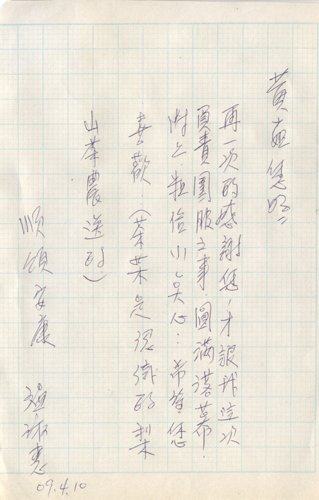 黃姐您好：
再一次的感謝您，才讓我這次
負責園服之事圓滿落幕.
附上粗俗小点心：希望您
喜歡.（茶葉是認識的梨
山茶農送的）
順頌安康
琼惠
09.4.10